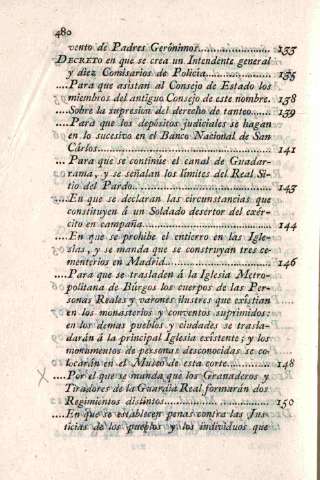 480
vento de Padres Gerónimos.................... 133
DECRETO en que se crea un Intendente general
y diez Comisarios de Policía.................. 135
....Para que asistan al Consejo de Estado los
miembros del antiguo Consejo de este nombre. 138
....Sobre la supresion del derecho de tanteo..... 139
....Para que los depósitos judiciales se hagan
en lo sucesivo en el Banco Nacional de San
Cárlos........................................ 141
... Para que se continúe el canal de Guadar-
rama, y se señalan los límites del Real Si-
tio del Pardo................................. 143
....En que se declaran las circunstancias que
constituyen á un Soldado desertor del exér-
cito en campaña............................... 144
....En que se prohibe el entierro en las Igle-
sias, y se manda que se construyan tres ce-
menterios en Madrid........................... 146
....Para que se trasladen á la Iglesia Metro-
politana de Búrgos los cuerpos de las Per-
sonas Reales y varones ilustres que existian
en los monasterios y conventos suprimidos:
en los demas pueblos y ciudades se trasla-
darán á la principal Iglesia existente; y los
monumentos de personas desconocidas se co-
locarán en el Museo de esta corte............. 148
....Por el que se manda que los Granaderos y
Tiradores de la Guardia Real formarán dos
Regimientos distintos......................... 150
....En que se establecen penas contra las Jus-
ticias de los pueblos y los individuos que